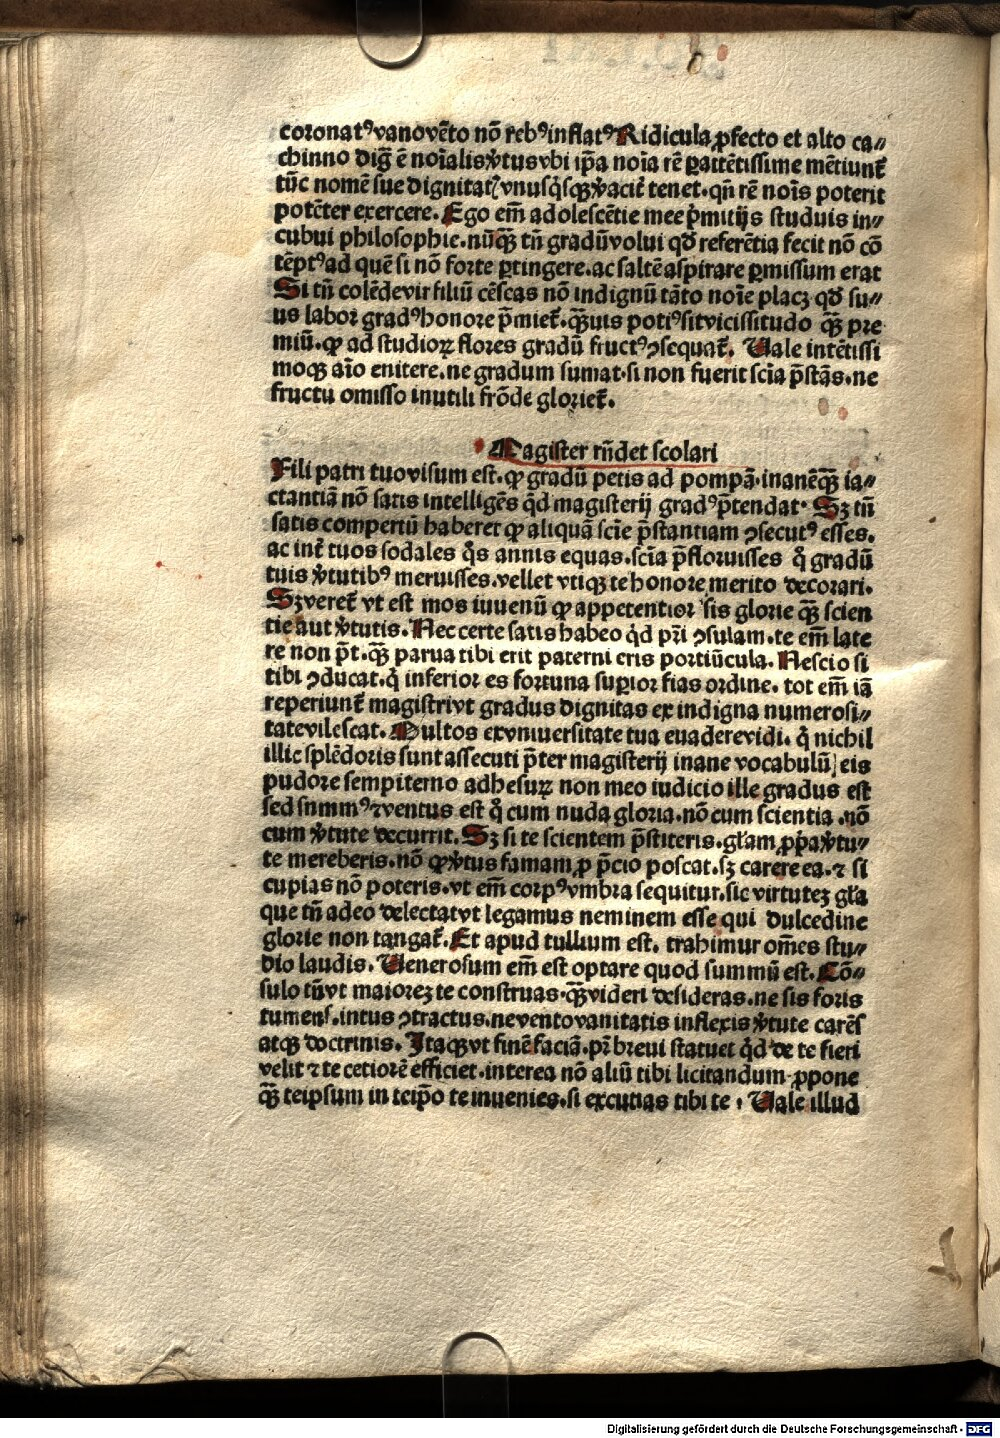 coronatꝰ vano vēto nō rebꝰ inflatꝰ Ridicula ꝓfecto et alto ca⸗
chinno diḡ ē noīalis v̓tus vbi ip̄a noīa rē ꝑattētissime mētiunt̄
tūc nomē sue dignitatꝭ vnusq̓sqꝫ v̓acit̄ tenet. qn̄ rē noīs poterit
potēter exercere. Ego em̄ adolescētie mee p̓mitijs studuis in⸗
cubui philosophie. nūqꝫ̄ tn̄ gradū volui qd̓ referētia fecit nō cō
tēptꝰ ad quē si nō forte ꝑtingere. ac saltē aspirare ꝑmissum erat
Si tn̄ colēde vir filiū cēscas nō indignū tāto noīe placꝫ qd̓ su⸗
us labor gradꝰ honore p̄miet̄. qꝫ̄uis potiꝰ sit vicissitudo qꝫ̄ pre
miū. ꝙ ad studioꝝ flores gradū fructꝰ ꝯsequat̄. Vale intētissi
moqꝫ aīo enitere. ne gradum sumat. si non fuerit scīa p̄stās. ne
fructu omisso inutili frōde gloriet̄.
Magister rn̄det scolari
Fili patri tuo visum est. ꝙ gradū petis ad pompā. inanēqꝫ̄ ia⸗
ctantiā nō satis intelligēs q̓d magisterij gradꝰ p̄tendat. Sꝫ tn̄
satis compertū haberet ꝙ aliquā scīe p̄stantiam ꝯsecutꝰ esses.
ac int̄ tuos sodales q̓s annis equas. scīa p̄floruisses q̓ gradū
tuis v̓tutibꝰ meruisses. vellet vtiqꝫ te honore merito decorari.
Sꝫ veret̄ vt est mos iuuenū ꝙ appetentior sis glorie qꝫ̄ scien
tie aut v̓tutis. Nec certe satis habeo q̓d pr̄i ꝯsulam. te em̄ late
re non p̄t. qꝫ̄ parua tibi erit paterni eris portiūcula. Nescio si
tibi ꝯducat. q̓ inferior es fortuna suꝑior fias ordine. tot em̄ iā
reperiunt̄ magistri vt gradus dignitas ex indigna numerosi⸗
tate vilescat. Multos ex vniuersitate tua euadere vidi. q̓ nichil
illic splēdoris sunt assecuti p̄ter magisterij inane vocabulū eis
pudore sempiterno adhesuꝝ non meo iudicio ille gradus est
sed snmmꝰ ⁊ ventus est q̓ cum nuda gloria. nō cum scientia .nō
cum v̓tute decurrit. Sꝫ si te scientem p̄stiteris. gl̄am ꝓp̄a v̓tu⸗
te mereberis. nō ꝙ v̓tus famam ꝓ p̄cio poscat. sꝫ carere ea. ⁊ si
cupias nō poteris. vt em̄ corpꝰ vmbra sequitur. sic virtuteꝫ gl̄a
que tn̄ adeo delectat vt legamus neminem esse qui dulcedine
glorie non tangat̄. Et apud tullium est. trahimur om̄es stu⸗
dio laudis. Venerosum em̄ est optare quod summū est. Cō⸗
sulo tn̄ vt maioreꝫ te construas. qꝫ̄ videri desideras. ne sis foris
tumens. intus ꝯtractus. ne vento vanitatis inflexis v̓tute carēs
atqꝫ doctrinis. Itaqꝫ vt finē faciā. pr̄ breui statuet q̓d de te fieri
velit ⁊ te cetiorē efficiet. interea nō aliū tibi licitandum ꝓpone
qꝫ̄ teipsum in teip̄o te inuenies. si excutias tibi te. Vale illud
Digitalisierung gefördert durch die Deutsche Forschungsgemeinschaft - DFG